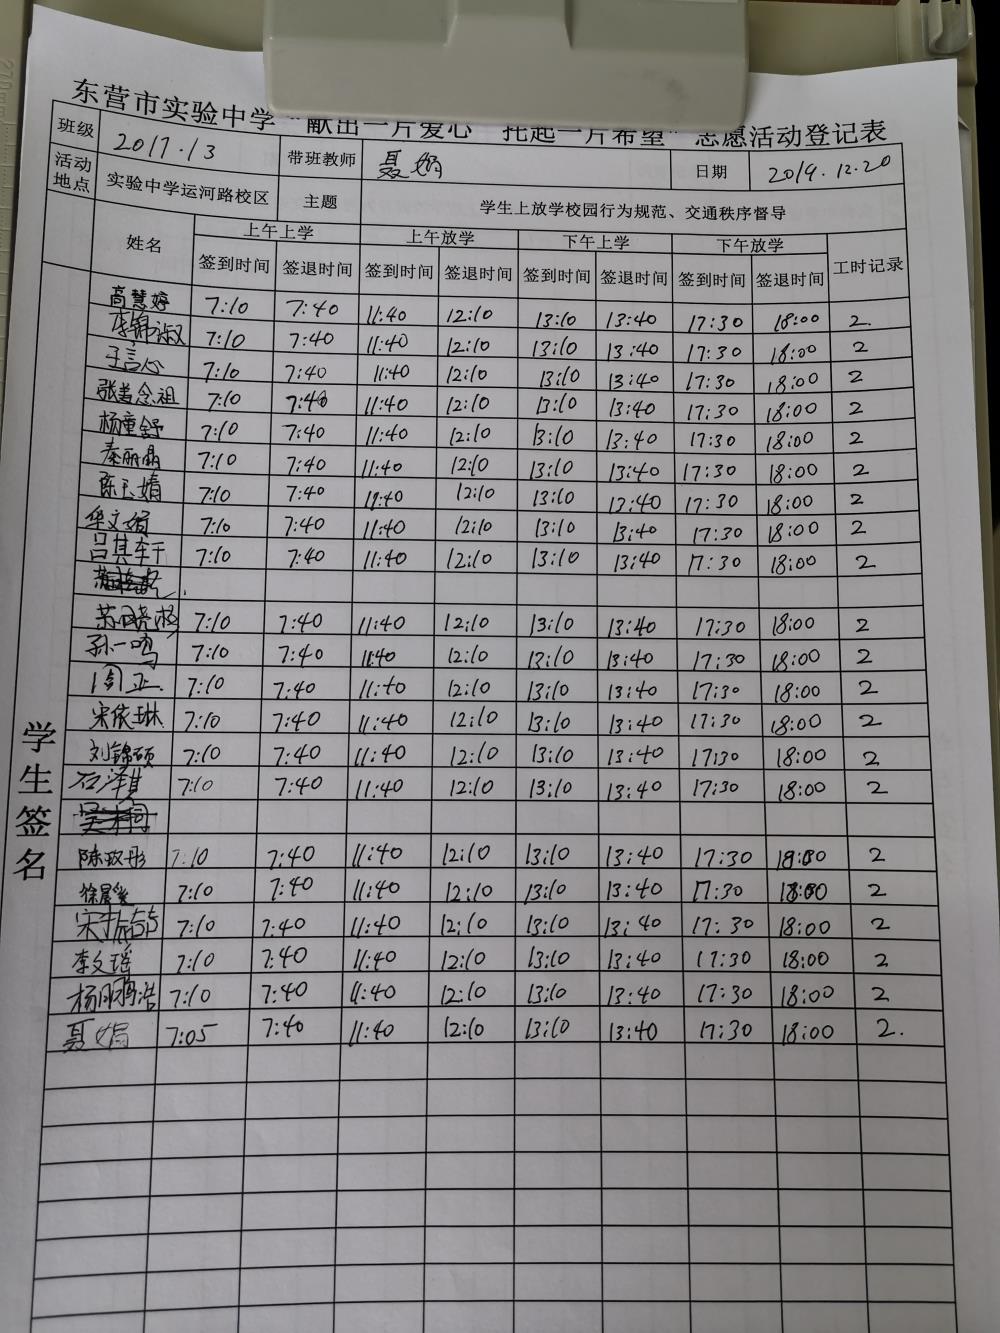 东营市实验中学“献出一片爱心 托起一片希望”志愿活动登记表
班级 2017.13 带班教师 聂娟 日期 2019.12.20
活动地点 实验中学运河路校区 主题 学生上放学校园行为规范、交通秩序督导
姓名 上午上学 上午放学 下午上学 下午放学 工时记录
签到时间 签退时间 签到时间 签退时间 签到时间 签退时间 签到时间 签退时间
学生签名
高慧婷 7:10 7:40 11:40 12:10 13:10 13:40 17:30 18:00 2.
李锦淑 7:10 7:40 11:40 12:10 13:10 13:40 17:30 18:00 2
王言心 7:10 7:40 11:40 12:10 13:10 13:40 17:30 18:00 2
张盖念祖 7:10 7:40 11:40 12:10 13:10 13:40 17:30 18:00 2
杨童舒 7:10 7:40 11:40 12:10 13:10 13:40 17:30 18:00 2
秦丽晶 7:10 7:40 11:40 12:10 13:10 13:40 17:30 18:00 2
陈玉婧 7:10 7:40 11:40 12:10 13:10 13:40 17:30 18:00 2
华文娟 7:10 7:40 11:40 12:10 13:10 13:40 17:30 18:00 2
吕其轩 7:10 7:40 11:40 12:10 13:10 13:40 17:30 18:00 2
7:10 7:40 11:40 12:10 13:10 13:40 17:30 18:00 2
孙一鸣 7:10 7:40 11:40 12:10 13:10 13:40 17:30 18:00 2
周正 7:10 7:40 11:40 12:10 13:10 13:40 17:30 18:00 2
宋依琳 7:10 7:40 11:40 12:10 13:10 13:40 17:30 18:00 2
刘锦硕 7:10 7:40 11:40 12:10 13:10 13:40 1730 18:00 2
石泽其 7:10 7:40 11:40 12:10 13:10 13:40 17:30 18:00 2
陈玫彤 7:10 7:40 11:40 12:10 13:10 13:40 17:30 18:00 2
徐晨 7:10 7:40 11:40 12:10 13:10 13:40 17:30 18:00 2
宋 7:10 7:40 11:40 12:10 13:10 13:40 17:30 18:00 2
李文瑶 7:10 7:40 11:40 12:10 13:10 13:40 17:30 18:00 2
杨鹏浩 7:10 7:40 11:40 12:10 13:10 13:40 17:30 18:00 2
聂娟 7:05 7:40 11:40 12:10 13:10 13:40 17:30 18:00 2.